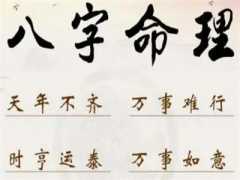 八字命理
天年不齐 万事难行
时亨运泰 万事如意